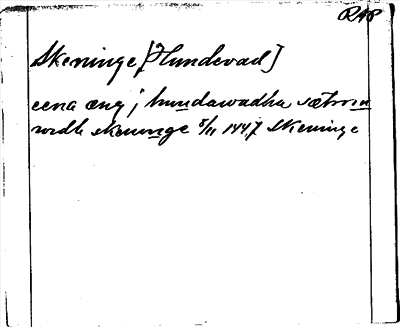 RAP
Skeninge [Hundevad]
eena æng j hundawadha sætrom
widh skeninge 5/11 1447 Skeninge